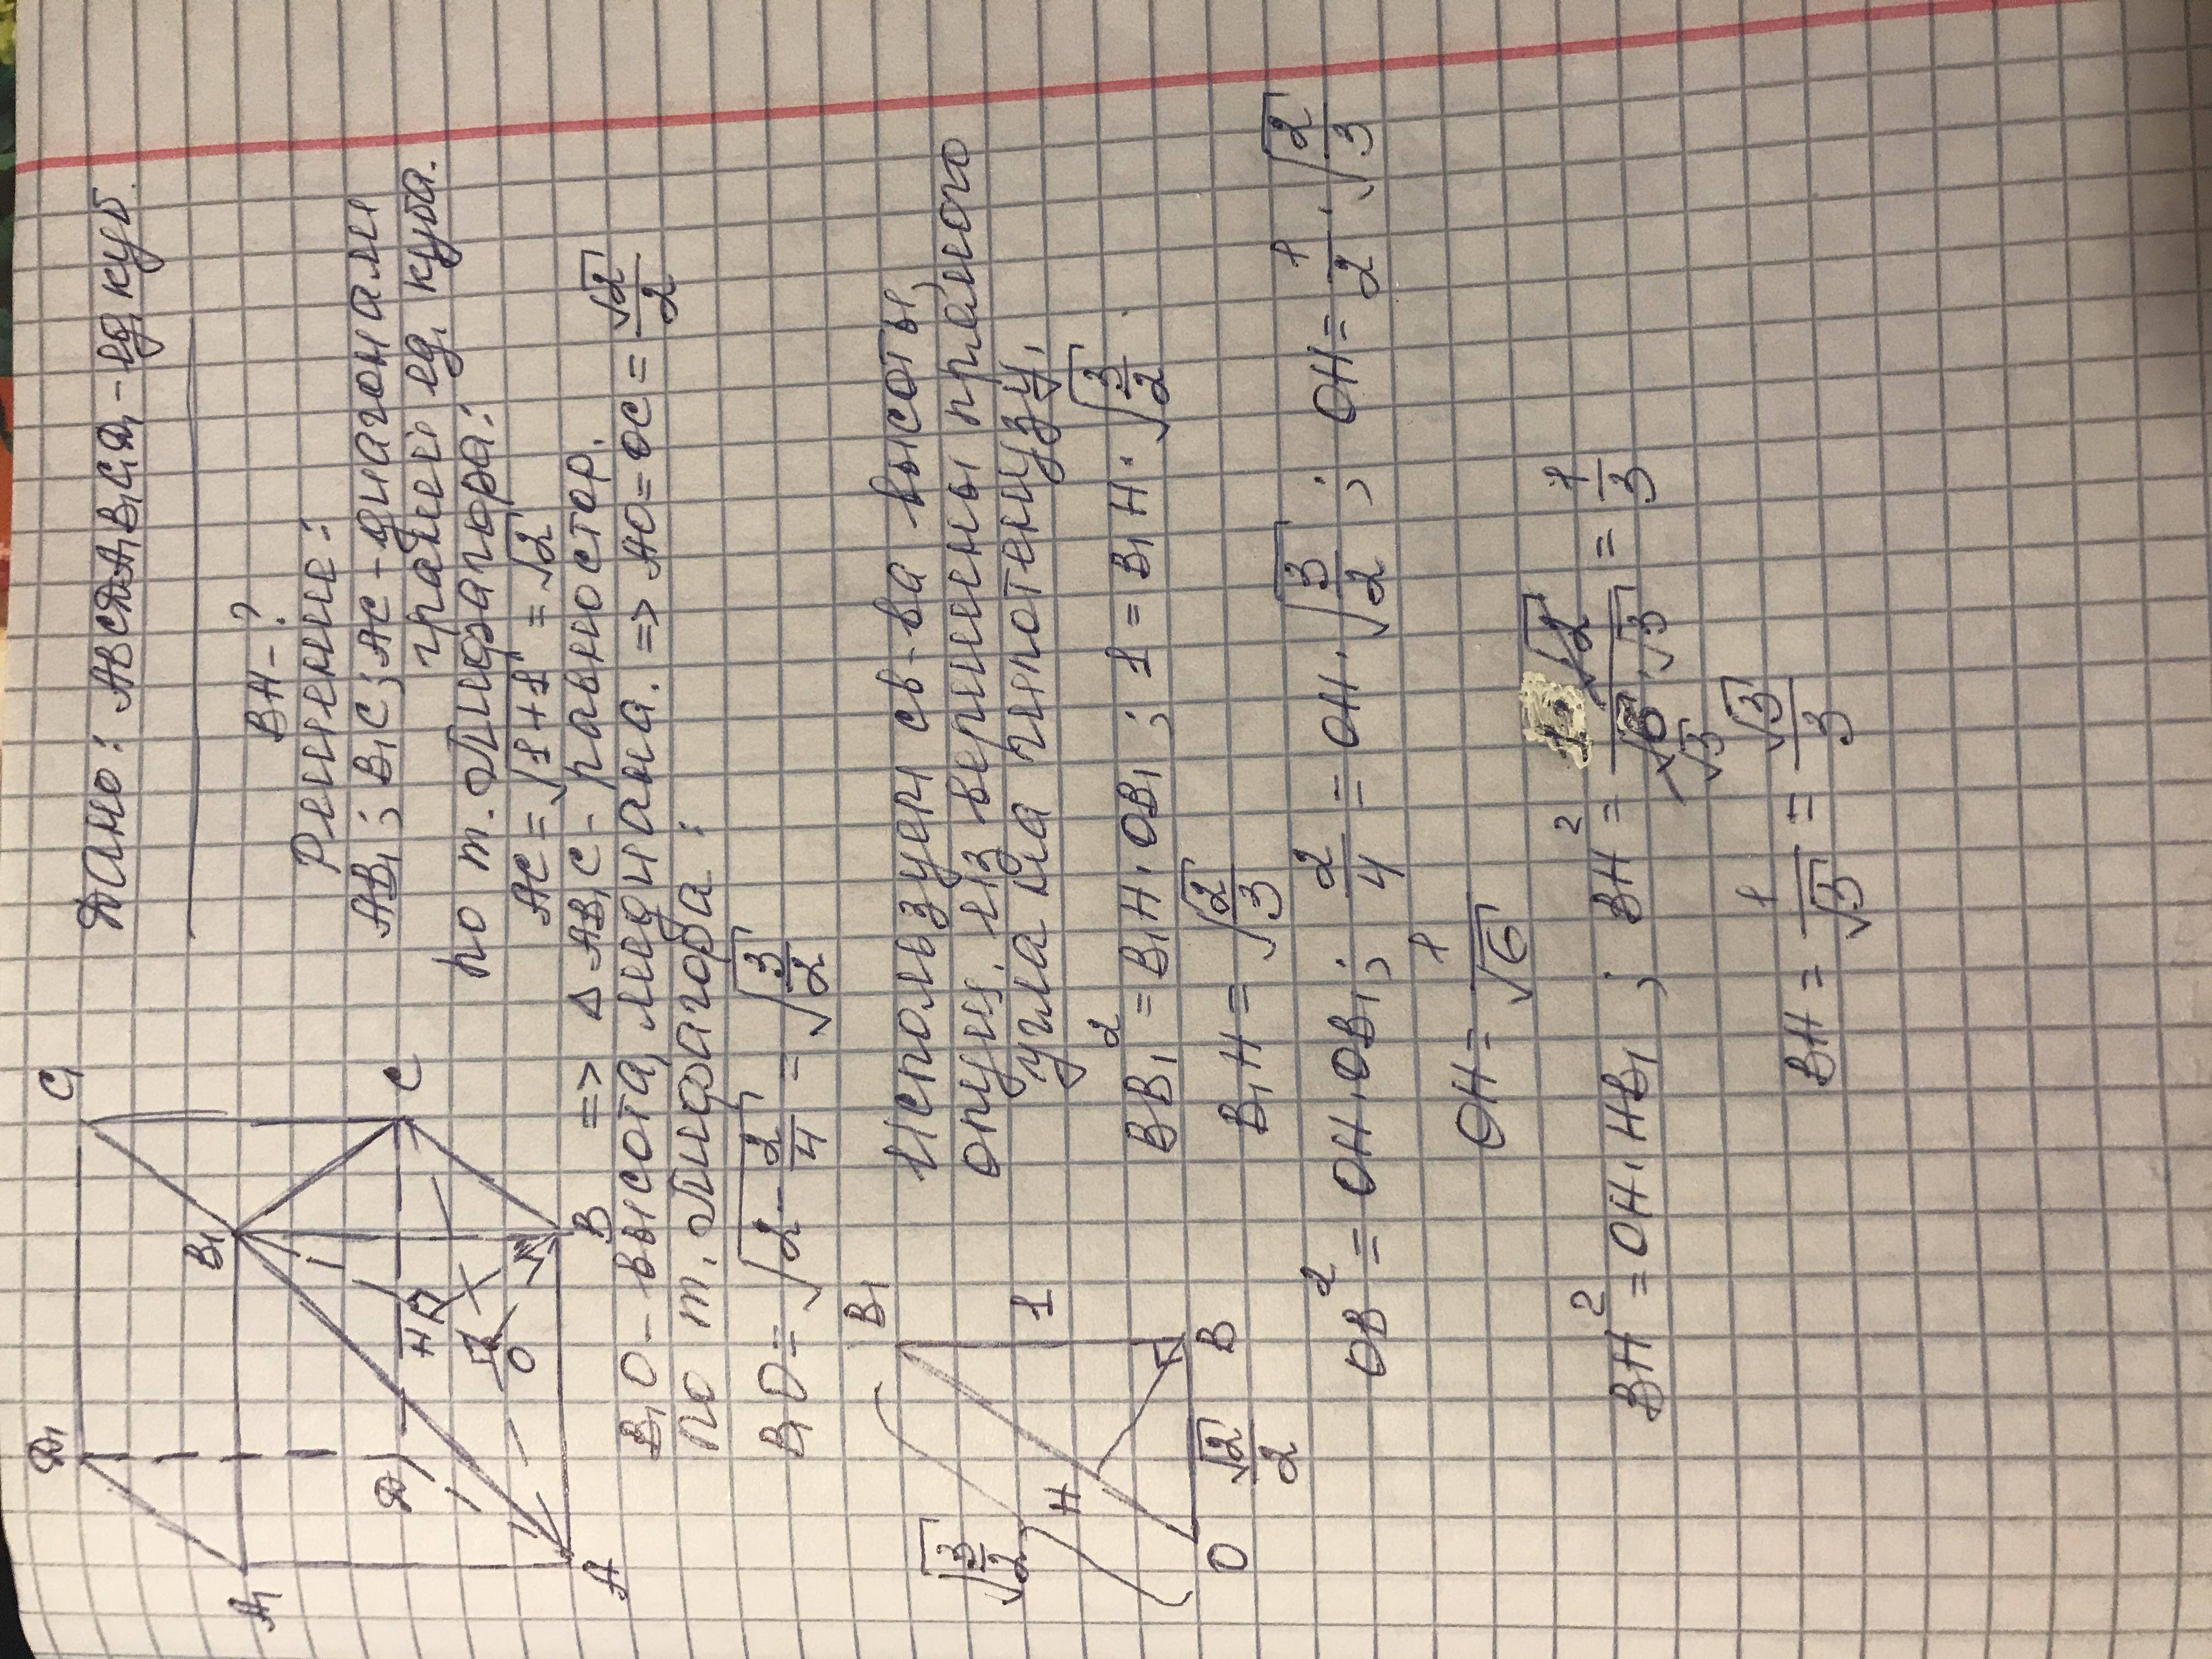 Дано: ABCDA₁B₁C₁D₁ - ед. куб.
BH - ?
Решение:
AB₁; B₁C; AC - диагонали
граней ед. куба.
по т. Пифагора:
AC = √(1+1) = √2
=> Δ AB₁C - равностор.
B₁O - высота, медиана. => AO = OC = √2/2
По т. Пифагора:
B₁O = √(2 - 2/4) = √(3/2)
D₁ C₁
A₁ B₁
D C
H
O
A B
B₁
√(3/2) 1
H
O √2/2 B
Используем св-ва высоты,
опущ. из вершины прямого
угла на гипотенузу.
BB₁² = B₁H · OB₁ ; 1 = B₁H · √(3/2) .
B₁H = √(2/3)
OB² = OH · OB₁ ; 2/4 = OH · √(3/2) ; OH = 1/2 · √(2/3)
OH = 1/√6
BH² = OH · HB₁ ; BH² = √2/(√6 √3 · √3) = 1/3
BH = 1/√3 = √3/3